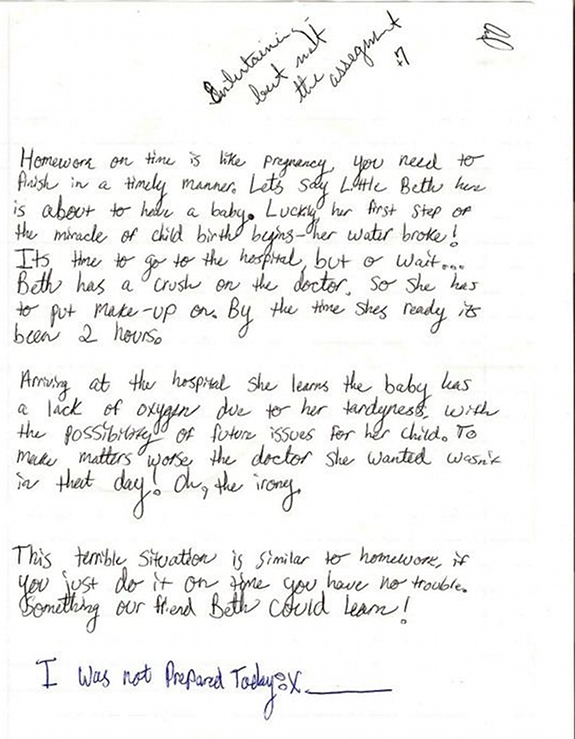 Entertaining -
but not
the assegment
:7
Homework on time is like pregnancy, you need to
finish in a timely manner. Lets say Little Beth here
is about to have a baby. Luckly her first step of
the miracle of child birth begins-her water broke!
Its time to go to the hospital, but o wait...
Beth has a crush on the doctor, so she has
to put make-up on. By the time shes ready its
been 2 hours.
Arriving at the hospital she learns the baby has
a lack of oxygen due to her tardyness, with
the possibility of future issues for her child. To
make matters worse, the doctor she wanted wasn't
in that day! Oh, the irony.
This terrible situation is similar to homework, if
you just do it on time you have no trouble.
Something our friend Beth could learn!
I Was not Prepared Today: X________